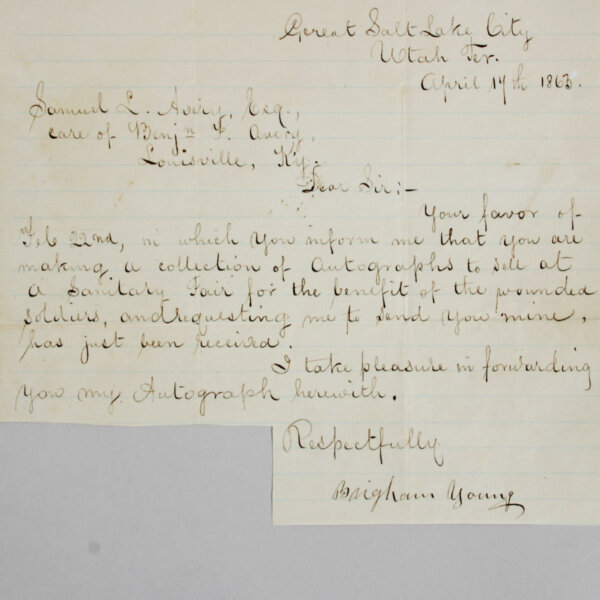 Great Salt Lake City
Utah Ter.
April 17th 1863.
Samuel L. Avery, Esq.,
care of Benjn F. Avery,
Louisville, Ky.
Dear Sir:–
Your favor of
Feb 22nd, in which you inform me that you are
making a collection of Autographs to sell at
a Sanitary Fair for the benefit of the wounded
soldiers, and requesting me to send you mine,
has just been received.
I take pleasure in forwarding
you my Autograph herewith.
Respectfully
Brigham Young